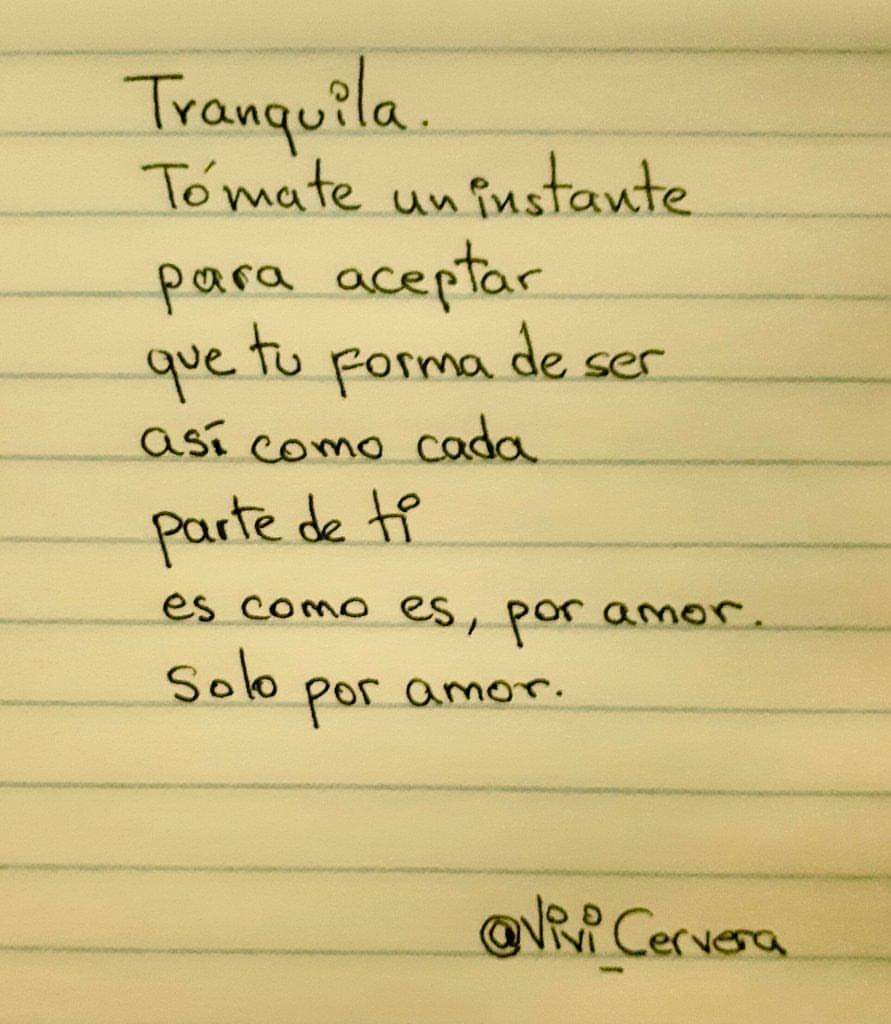 Tranquila.
Tómate un instante
para aceptar
que tu forma de ser
así como cada
parte de ti
es como es, por amor.
Solo por amor.
@Vivi_Cervera